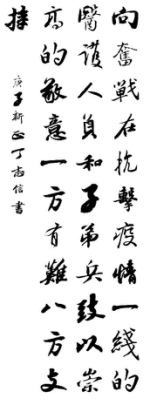 向奮戰在抗擊疫情一綫的
醫護人員和子弟兵致以崇
高的敬意一方有難八方支
援
庚子新正丁信書